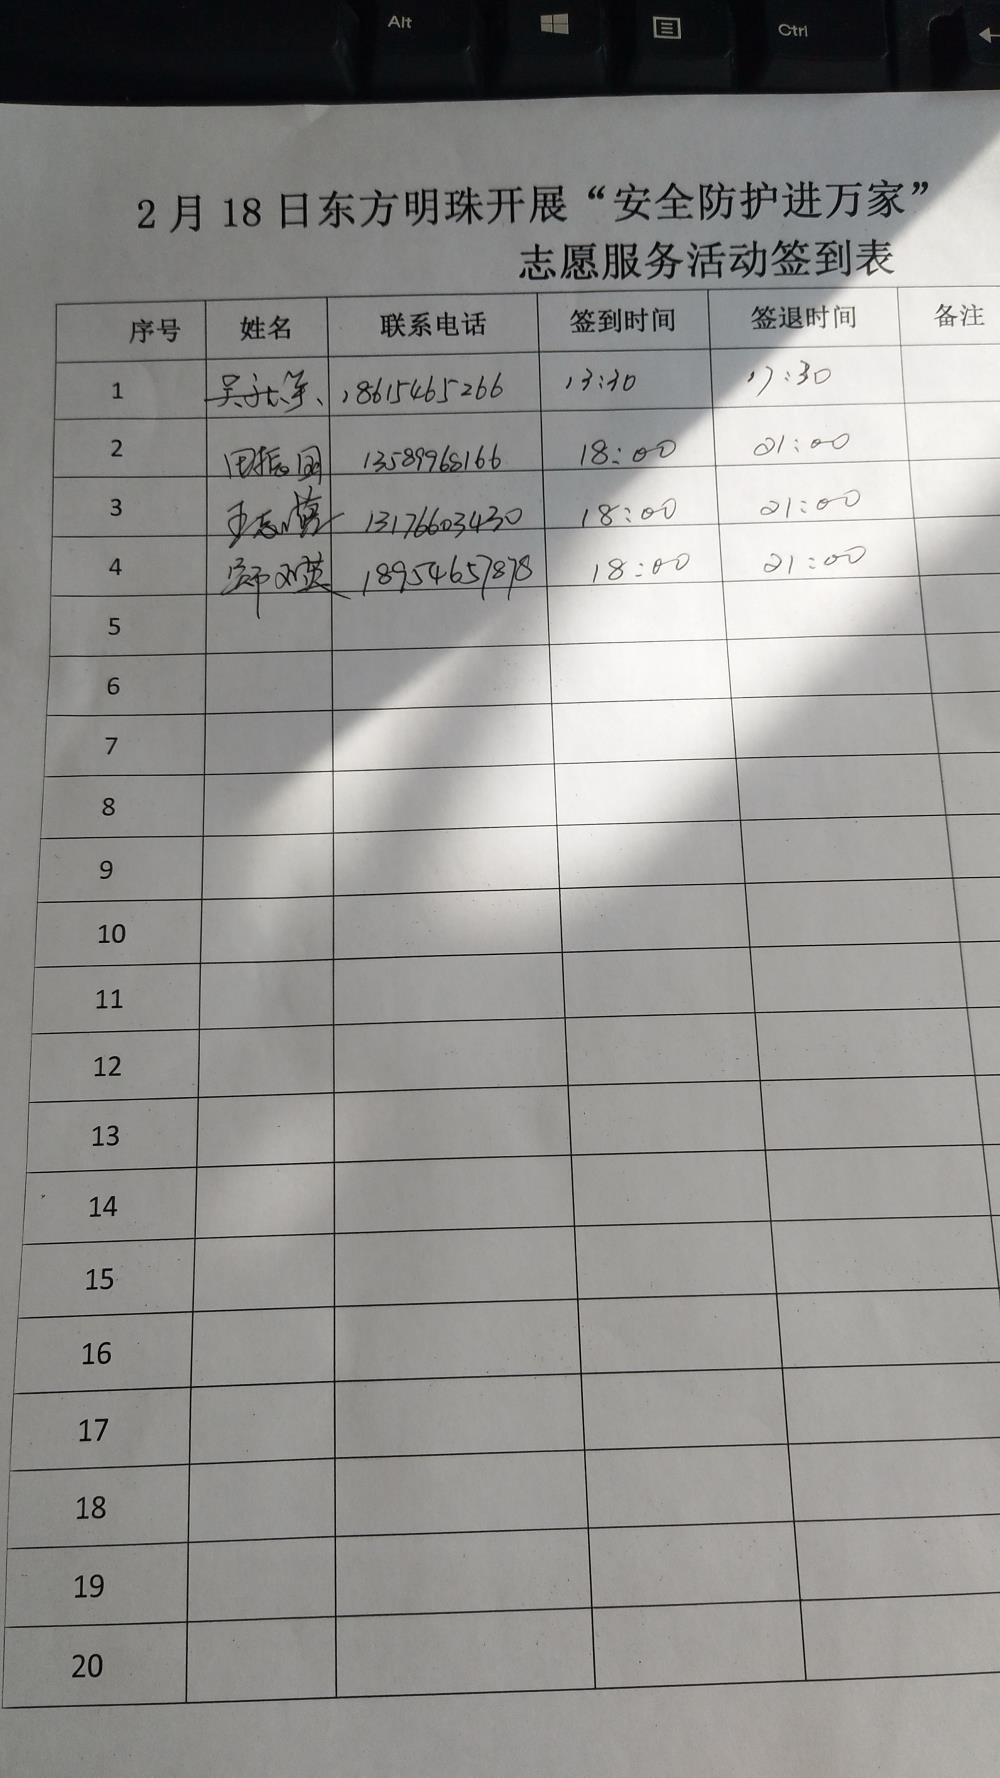 Alt
Ctrl
2月18日东方明珠开展“安全防护进万家”
志愿服务活动签到表
序号 姓名 联系电话 签到时间 签退时间 备注
1 18615465266 13:30 17:30
2 田振国 13589968166 18:00 21:00
3 13176603430 18:00 21:00
4 18954657878 18:00 21:00
5
6
7
8
9
10
11
12
13
14
15
16
17
18
19
20